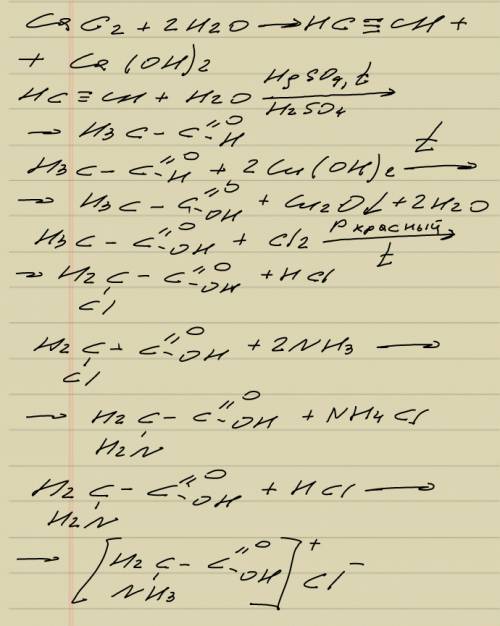 CaC2 + 2H2O → HC≡CH +
+ Ca(OH)2
HC≡CH + H2O HgSO4, t → H2SO4
→ H3C - C =O -H
H3C - C =O -H + 2Cu(OH)2 t →
→ H3C - C =O -OH + Cu2O↓ + 2H2O
H3C - C =O -OH + Cl2 P красный → t
→ H2C - C =O -OH + HCl
Cl
H2C - C =O -OH + 2NH3 →
Cl
→ H2C - C =O -OH + NH4Cl
H2N
H2C - C =O -OH + HCl →
H2N
→ [H2C - C =O -OH]+ Cl-
NH3